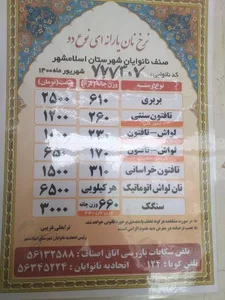 نرخ نان یارانه ای نوع دو
صنف نانوایان شهرستان اسلامشهر
کد نانوایی: ۷۷۷۳۰۷ شهریور ماه ۱۴۰۰
نوع وزن چانه قیمت (تومان)
بربری ۶۱۰ ۲۵۰۰
تافتون سنتی ۲۶۰ ۱۲۰۰
لواش - تافتون ۲۳۰ ۱۰۰۰
لواش - تافتون ۱۷۰ ۶۵۰
تافتون خراسانی ۳۱۰ ۱۵۰۰
نان لواش اتوماتیک هر کیلویی ۶۵۰۰
سنگک ۶۶۰ وزن چانه ۳۰۰۰
تلفن شکایات بازرسی اتاق اصناف: ۵۶۱۳۲۵۸۸
تلفن گویا: ۱۲۴ اتحادیه نانوایان: ۵۶۳۴۵۲۲۴